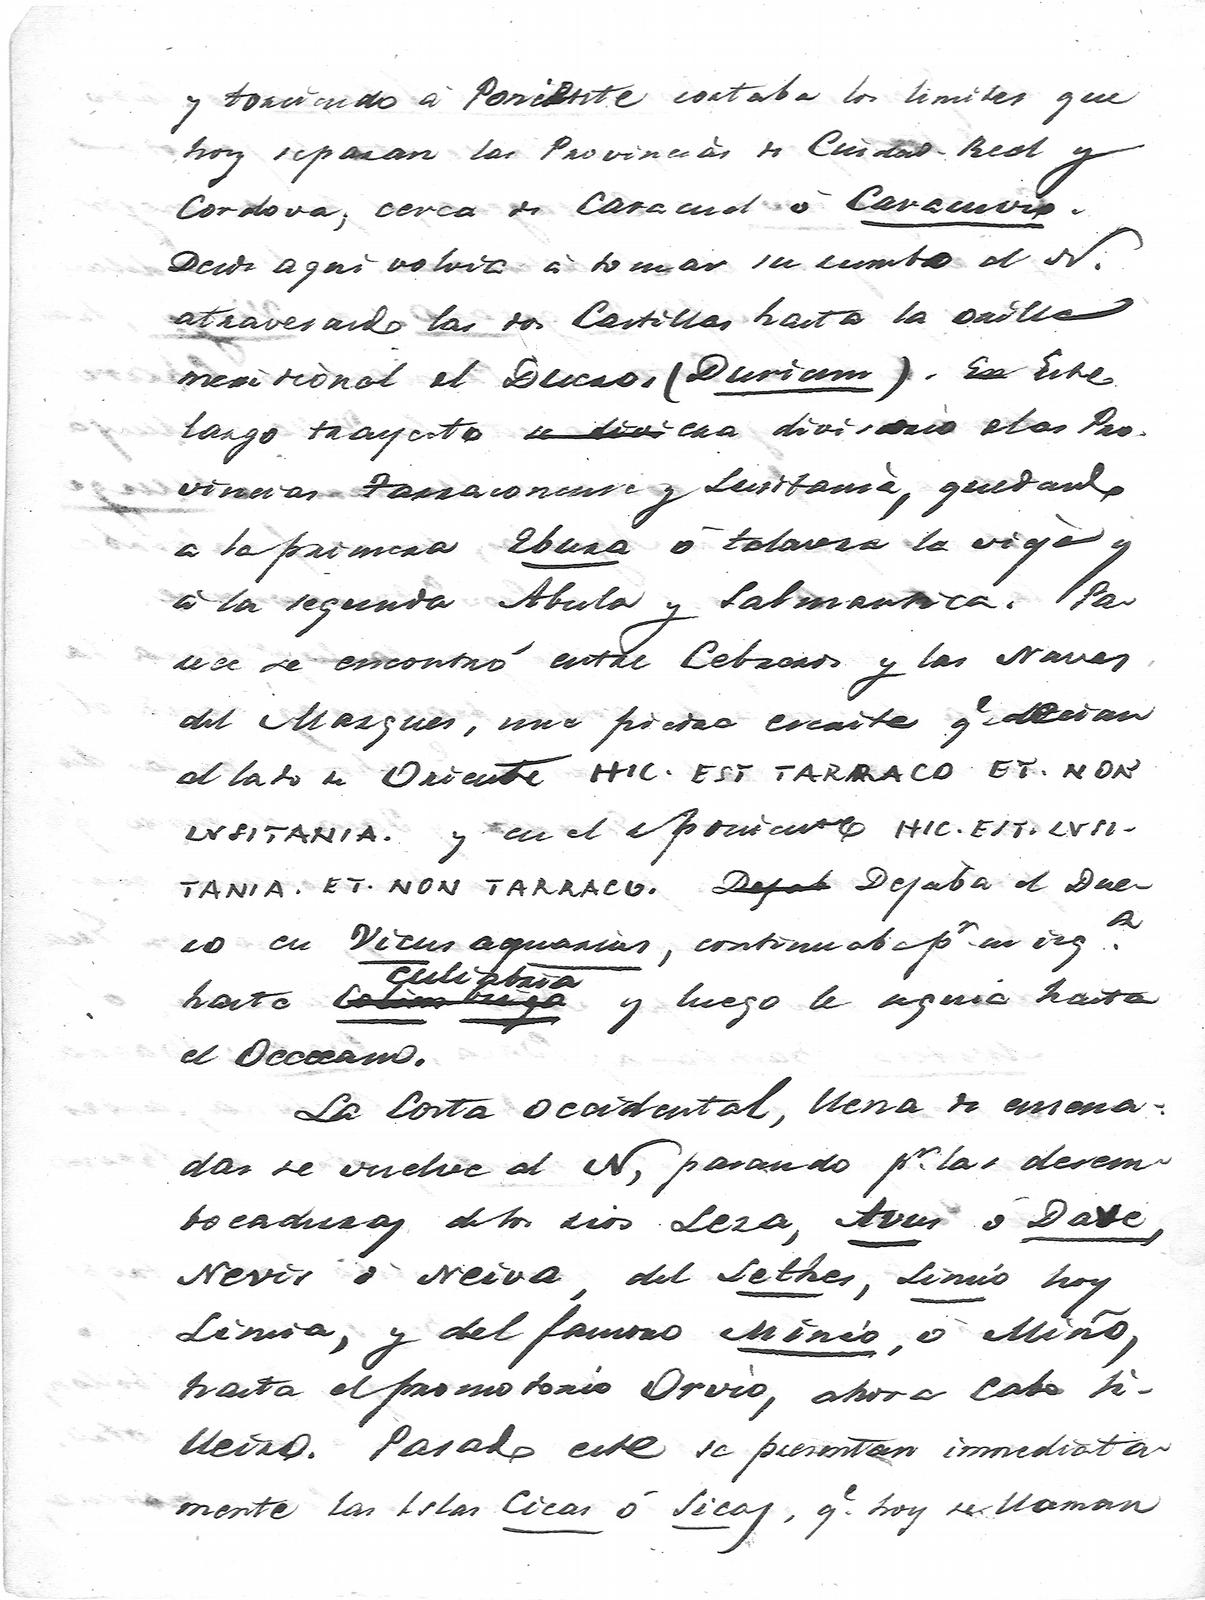 y torciendo á Poniente cortaba los limites que
hoy separan las Provincias de Ciudad-Real y
Cordova, cerca de Caracuel ó Caracuvio.
Desde aqui volvia á tomar su rumbo al N.
atravesando las dos Castillas hasta la orilla
meridional el Duero (Durium). En Este
largo trayecto se divi era divisorio elas Pro-
vincias Tarraconense y Lusitania, quedando
a la primera Ebura ó talavera la vieja y
á la segunda Abula y Salmantica. Pa-
rece se encontró entre Cebreros y las Navas
del Marques, una piedra escrita qe decian
al lado de Oriente HIC. EST TARRACO ET. NON
LVSITANIA. y en el poniente HIC. EST. LVSI-
TANIA. ET. NON TARRACO. Dejab Dejaba el Due-
ro en Vicus aquarius, continuaba pr su izqa.
Culiabria
hasta y luego le seguia hasta
el Occeano.
La Costa occidental, llena de ensena-
das se vuelve al N, pasando pr. las desem-
bocaduras de los rios Leza, Avus ó Dave,
Nevis ó Neiva, del Lethes, Limio hoy
Limia, y del famoso Minio, ó Miño,
hasta el promotorio Orvio, ahora Cabo Si-
lleiro. Pasado este se presentan inmediata-
mente las Islas Cicas ó Sicas, qe. hoy se llaman